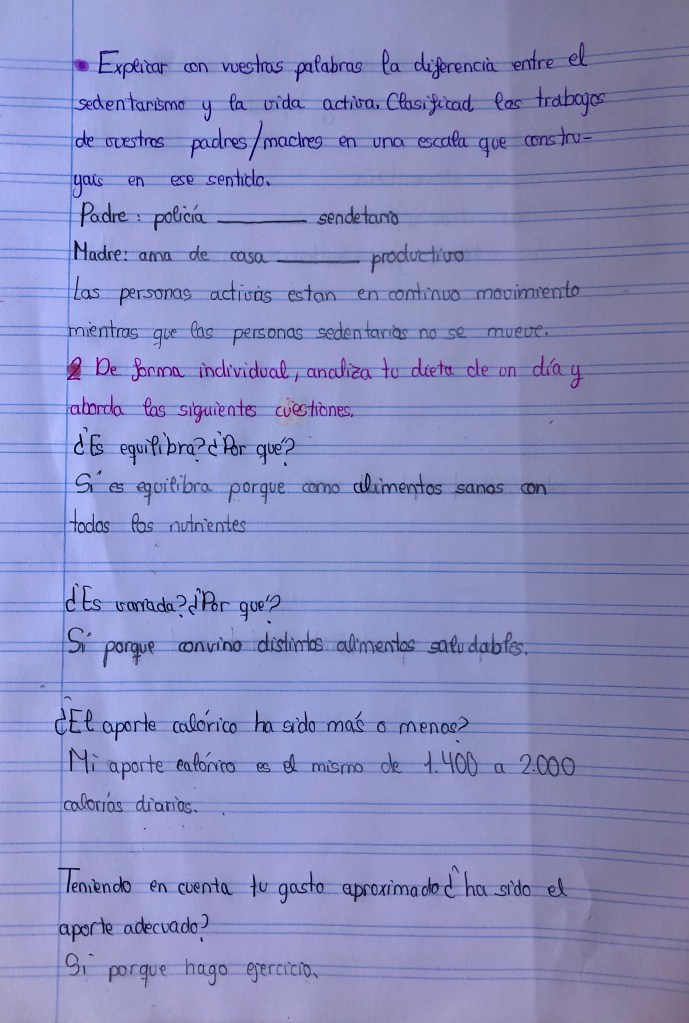 • Explicar con vuestras palabras la diferencia entre el
sedentarismo y la vida activa. Clasificad los trabagos
de vuestros padres/madres en una escala que constru-
yais en ese sentido.
Padre: policía ________ sendetario
Madre: ama de casa ________ productivo
Las personas activas estan en continuo movimiento
mientras que las personas sedentarias no se mueve.
2 De forma individual, analiza tu dieta de un día y
aborda las siguientes cuestiones.
¿Es equilibra? ¿Por qué?
Sí es equilibra porque como alimentos sanos con
todos los nutrientes
¿Es variada? ¿Por qué?
Sí porque convino distintos alimentos saludables.
¿El aporte calórico ha sido más o menos?
Mi aporte calórico es el mismo de 1.400 a 2.000
calorías diarias.
Teniendo en cuenta tu gasto aproximado ¿ha sido el
aporte adecuado?
Sí porque hago ejercicio.